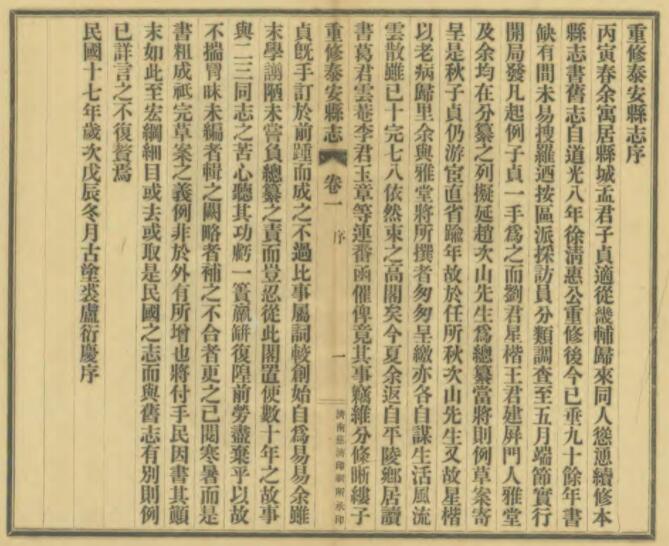 重修泰安縣志序
丙寅春余寓居縣城孟君子貞適從畿輔歸來同人慫慂續修本
縣志書舊志自道光八年徐清惠公重修後今已垂九十餘年書
缺有間未易搜羅迺按區派採訪員分類調查至五月端節實行
開局發凡起例子貞一手為之而劉君星楷王君建屏門人雅堂
及余均在分纂之列擬延趙次山先生為總纂當將則例草案寄
呈是秋子貞仍游宦直省踰年故於任所秋次山先生又故星楷
以老病歸里余與雅堂將所撰者匆匆呈繳亦各自謀生活風流
雲散雖已十完七八依然束之高閣矣今夏余返自平陵鄉居讀
書葛君雲菴李君玉章等連番函催俾竟其事竊維分修晰縷子
重修泰安縣志 卷一 序 一 濟南慈濟印刷所承印
貞既手訂於前踵而成之不過比事屬詞較創始自為易易余雖
末學謭陋未嘗負總纂之責而豈忍從此閣置使數十年之故事
與二三同志之苦心聽其功虧一簣瓶缾復隍前勞盡棄乎以故
不揣冒昧未編者輯之闕略者補之不合者更之已閱寒暑而是
書粗成祇完草案之義例非於外有所增也將付手民因書其顛
末如此至宏綱細目或去或取是民國之志而與舊志有別則例
已詳言之不復贅焉
民國十七年歲次戊辰冬月古塗裘盧衍慶序